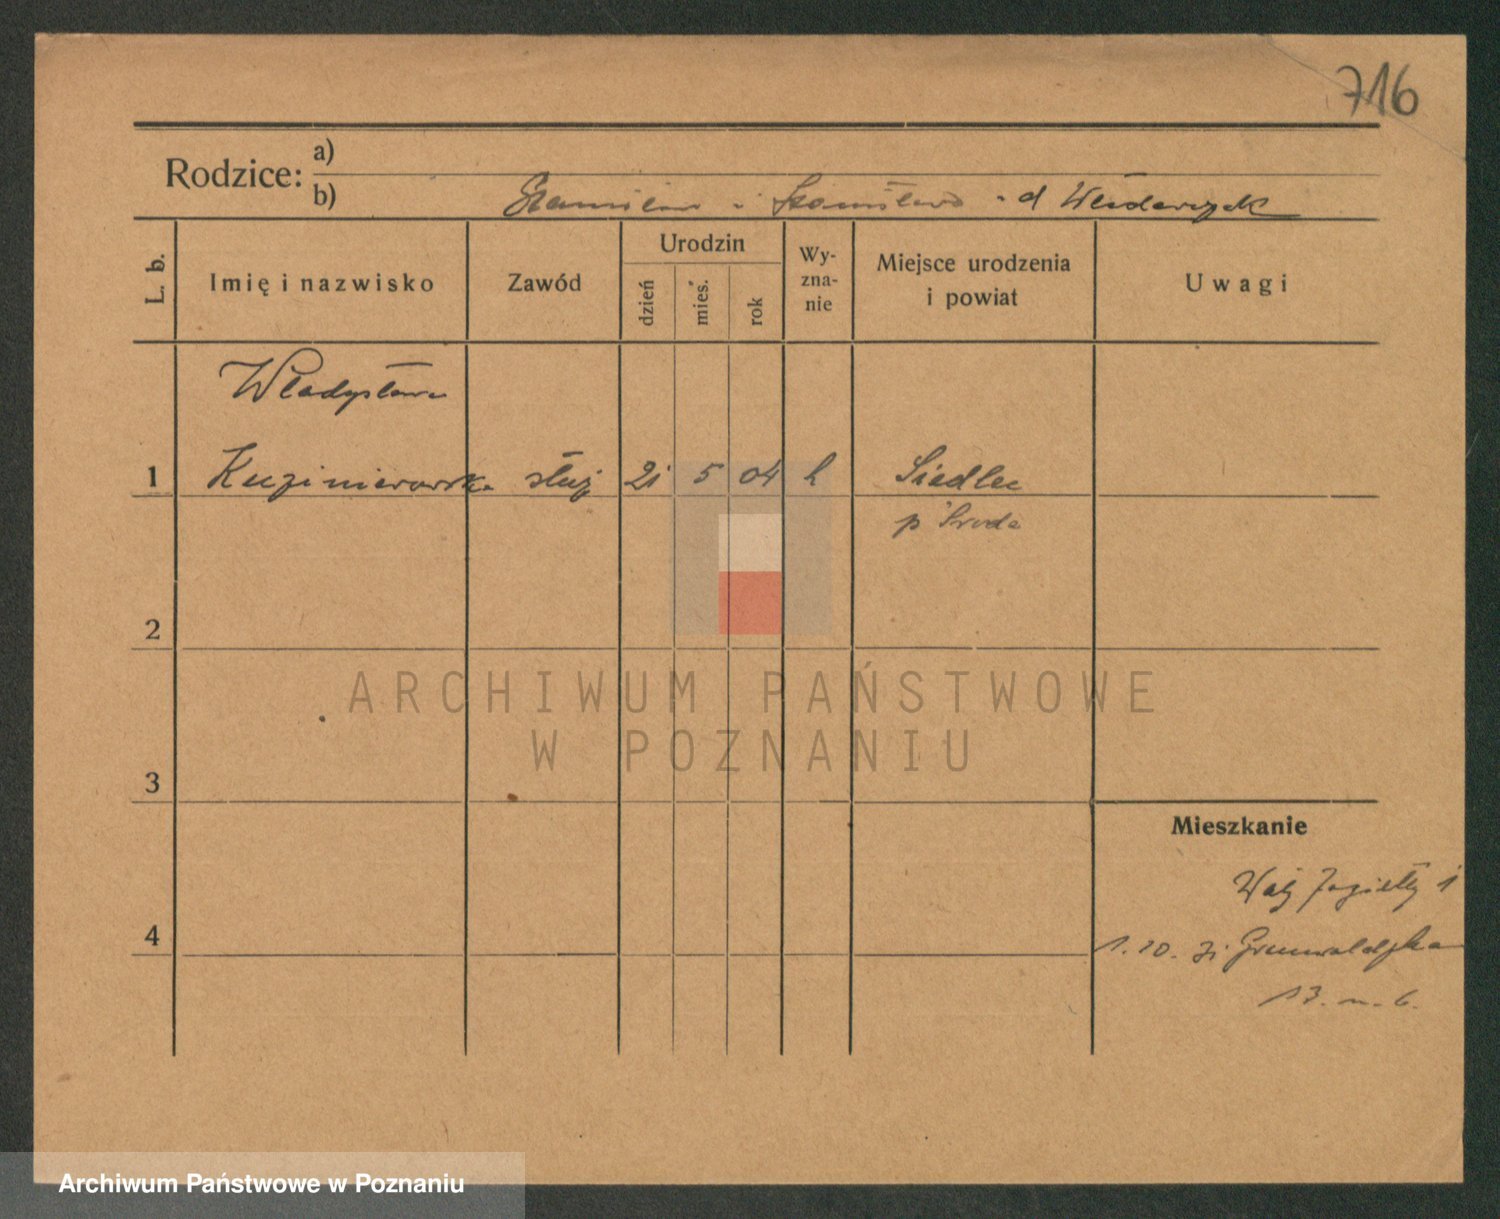 716
Rodzice: a)
b) Stanisław i Stanisława z d Włodarczyk
L. b.
Imię i nazwisko
Zawód
Urodzin
dzień
mies.
rok
Wy-
zna-
nie
Miejsce urodzenia
i powiat
Uwagi
Władysława
1 Kuźniewska służ 21 5 04 k Siedlec
p Środa
2
3
4
Mieszkanie
Wł Jagiełły 1
1. 10. 31 Grunwaldzka
13. m. 6.
ARCHIWUM PAŃSTWOWE
W POZNANIU
Archiwum Państwowe w Poznaniu